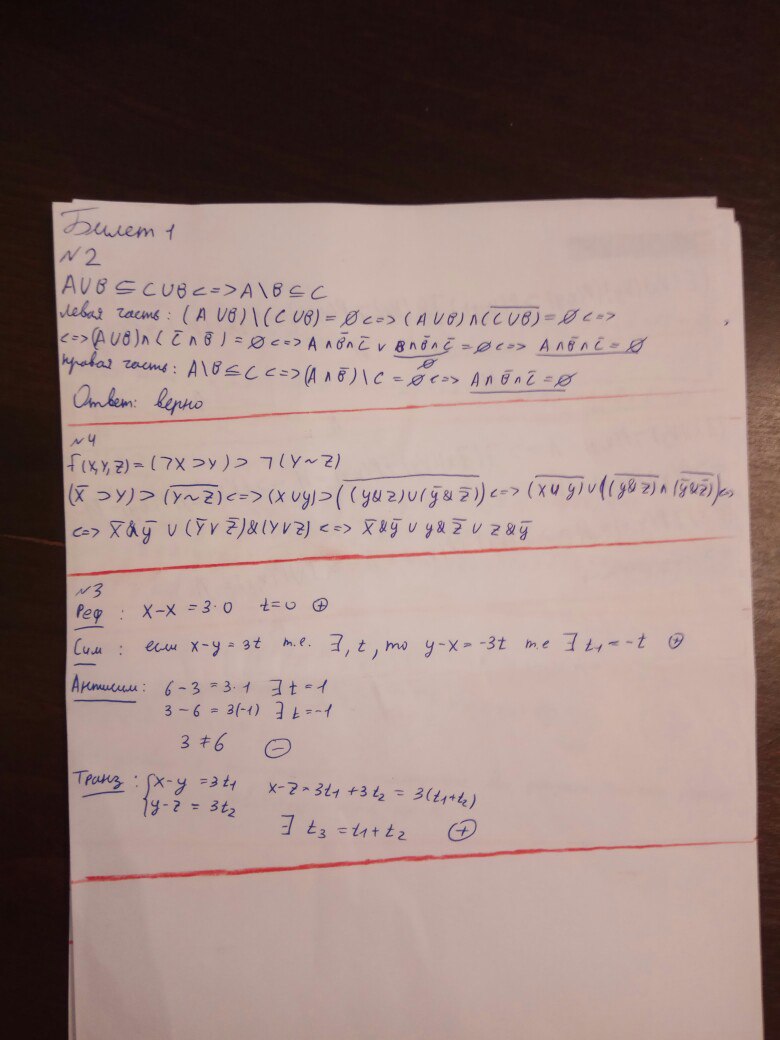 Билет 1
№2
A∪B ⊆ C∪B <=> A\B ⊆ C
Левая часть: (A∪B)\(C∪B) = ∅ <=> (A∪B)∩(\overline{C∪B}) = ∅ <=>
<=> (A∪B)∩(C̄∩B̄) = ∅ <=> A∩B̄∩C̄ ∨ B∩B̄∩C̄ = ∅ <=> A∩B̄∩C̄ = ∅
∅
правая часть: A\B ⊆ C <=> (A∩B̄)\C = ∅ <=> A∩B̄∩C̄ = ∅
Ответ: верно
№4
f(X,Y,Z) = (¬X⊃Y) ⊃ ¬(Y~Z)
(X̄⊃Y) ⊃ (\overline{Y~Z}) <=> (X∪y) ⊃ (\overline{(y&z)∪(ȳ&z̄)}) <=> (\overline{X∪y}) ∪ ((\overline{y&z})∩(\overline{ȳ&z̄})) <=>
<=> X̄&ȳ ∪ (Ȳ∨Z̄)&(Y∨Z) <=> X̄&ȳ ∪ y&z̄ ∪ z&ȳ
№3
Реф: x-x = 3·0 t=0 ⊕
Сим: если x-y = 3t т.е. ∃, t, то y-x = -3t т.е ∃ t₁ = -t ⊕
Антисим: 6-3 = 3·1 ∃ t = 1
3-6 = 3(-1) ∃ t = -1
3 ≠ 6 ⊖
Транз: { x-y = 3t₁ x-z = 3t₁ + 3t₂ = 3(t₁+t₂)
y-z = 3t₂
∃ t₃ = t₁ + t₂ ⊕